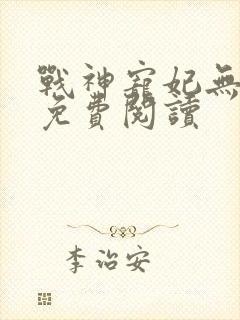 戰神寵妃無
免費閱讀
李治安